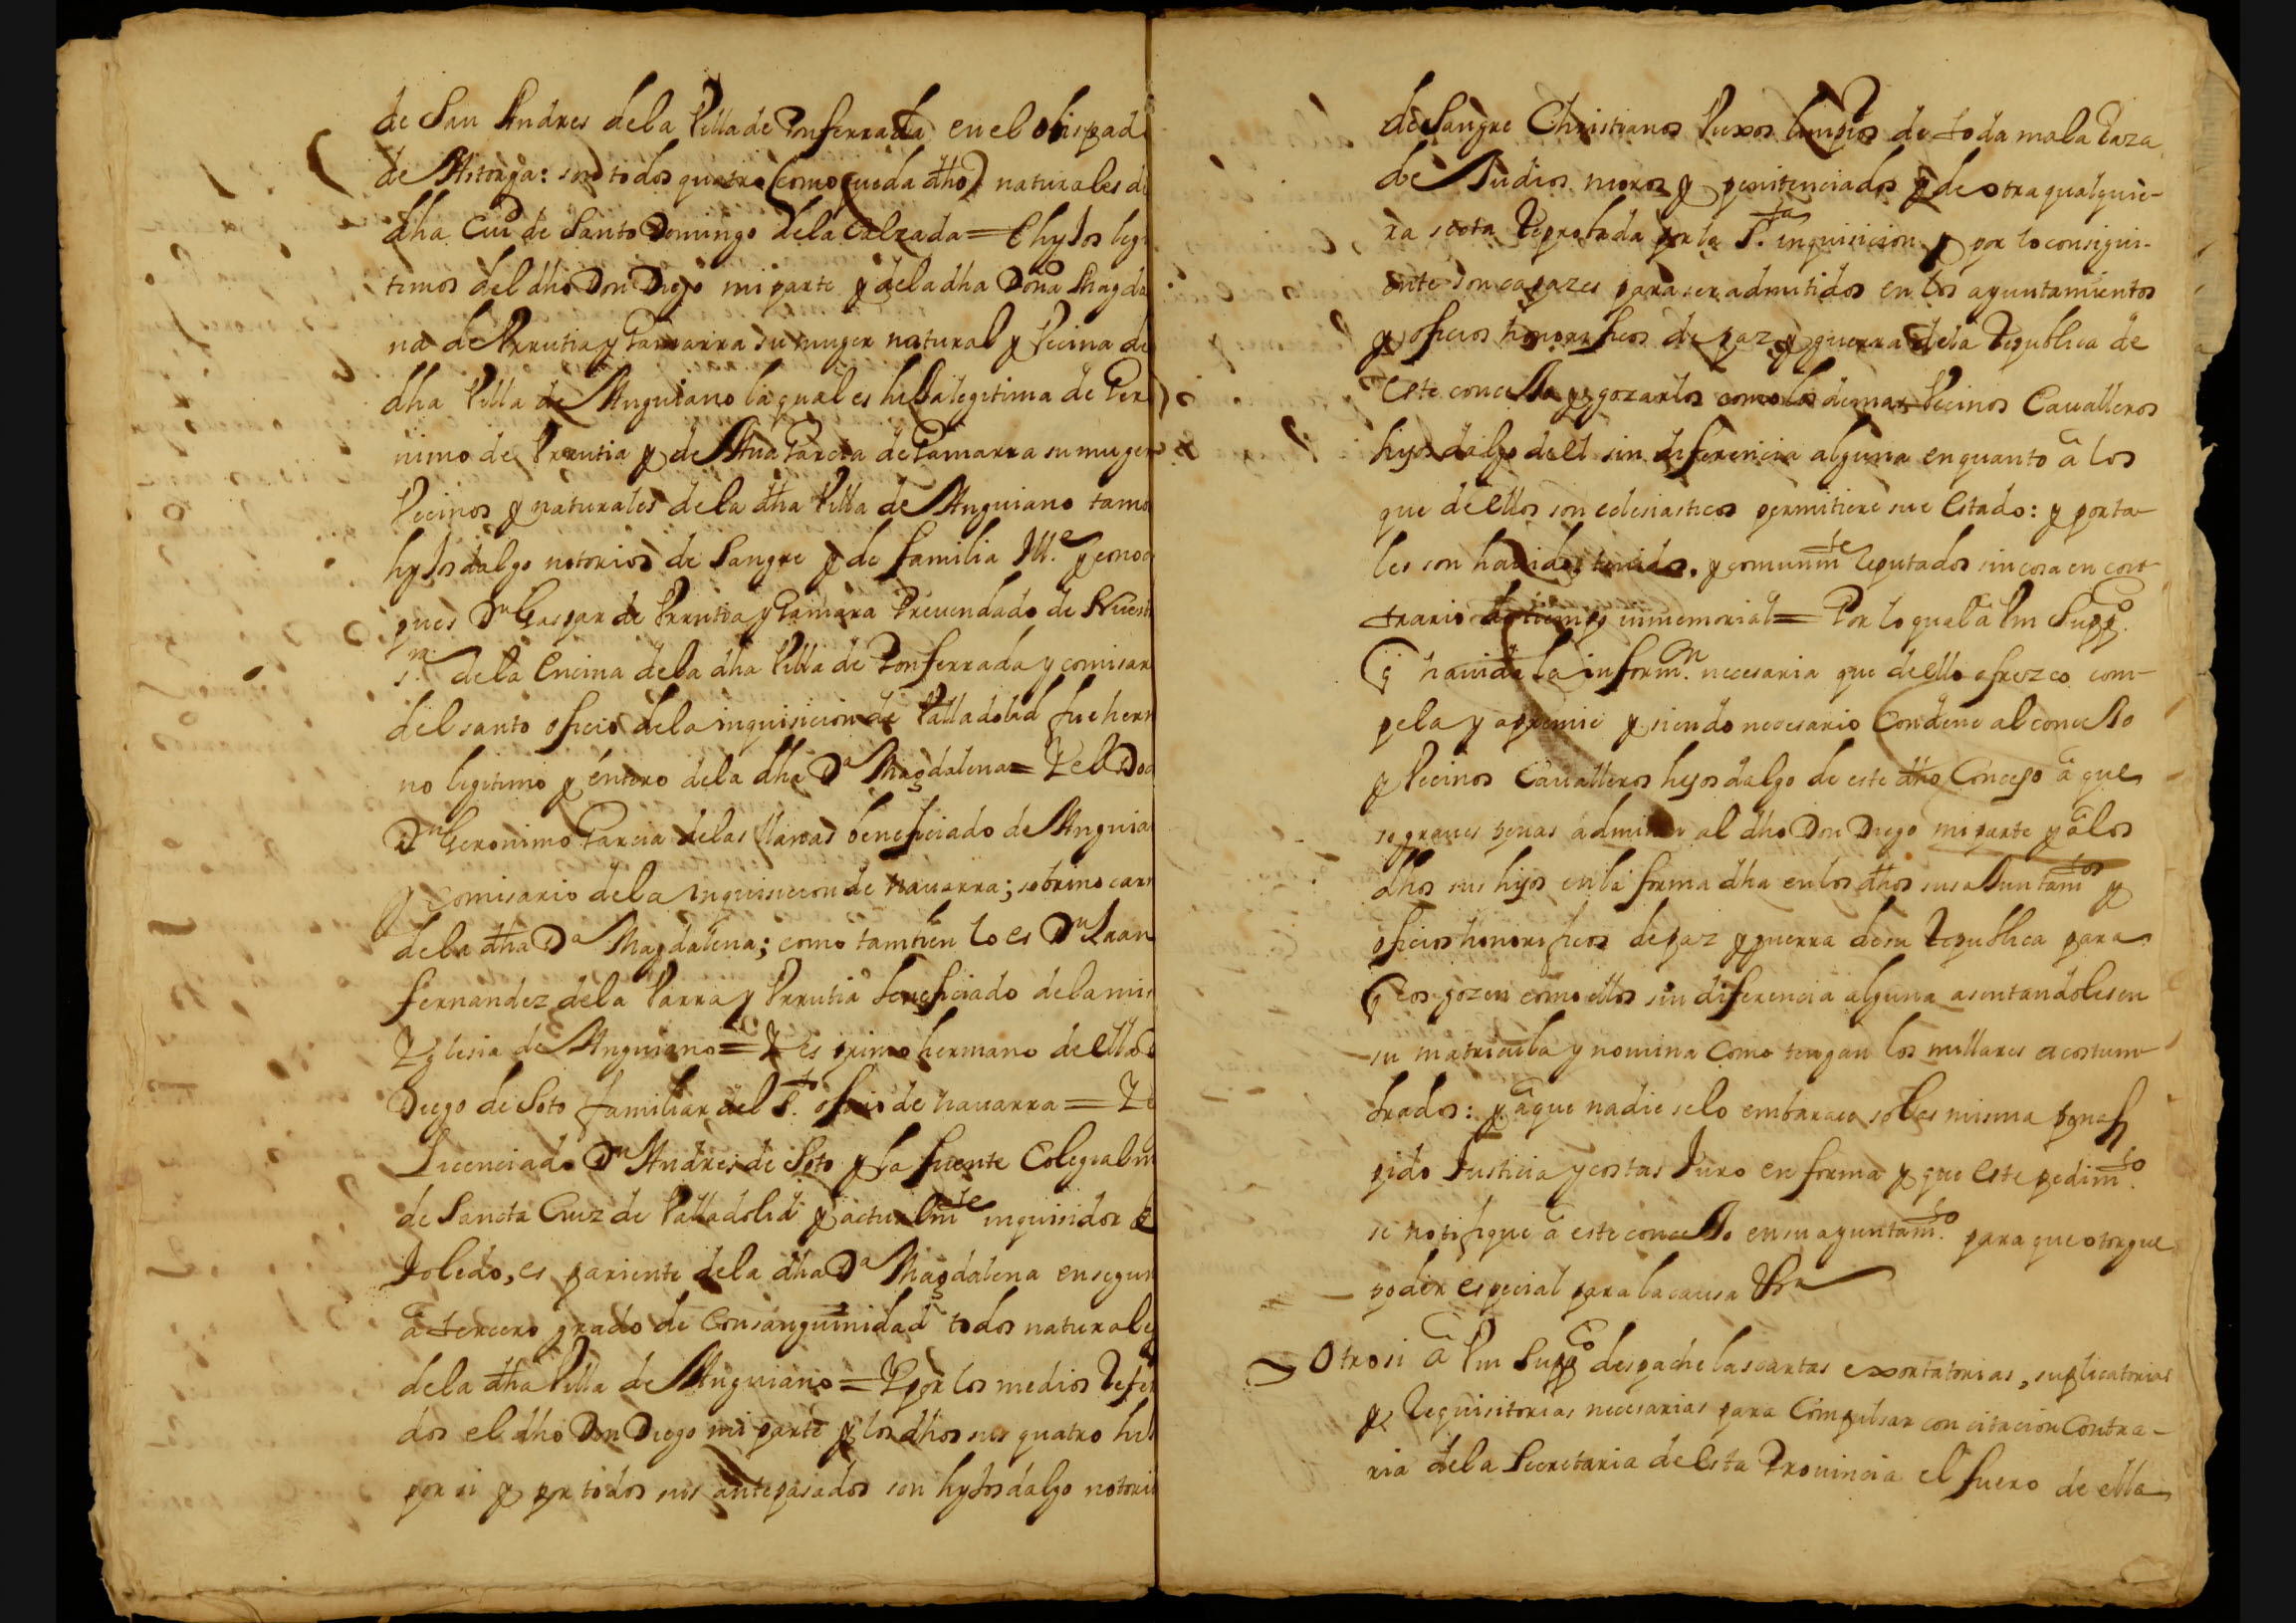 de San Andres dela Villa de Ponferrada en el obispad
de Astorga: son todos quatro (como queda dho) naturales d
dha Ciud de Santo Domingo dela Calzada = E hyJos legi
timos del dho Don Diego mi parte y dela dha Doña Magda
na de Vrrutia y Gamarra su muger natural y Vecina de
dha Villa de Anguiano la qual es hiJa legitima de Ger
nimo de Vrrutia y de Ana Garcia de Gamarra su muger
Vecinos y naturales dela dha Villa de Anguiano tam
hyJosdalgo notorios de Sangre y de familia Ill.e y cono
pues Dn Gaspar de Vrrutia y Gamara Prevendado de Nuest
s.ra dela Encina dela dha Villa de Ponferrada y comisar
del santo oficio dela inquisicion de Valladolid fue herm
no legitimo y entero dela dha Da Magdalena = Y el Doc
Dn Geronimo Garcia delas Llanas beneficiado de Anguia
y comisario dela Inquisicion de nauarra; sobrino carn
dela dha Da Magdalena; como tambien lo es Dn Fran
fernandez dela Parra y Vrrutia beneficiado dela mis
Yglesia de Anguiano = Y es primo hermano de ella
Diego de Soto familiar del S.to oficio de nauarra = Y e
Licenciado Dn Andres de Soto y la fuente Colegial m
de Sancta Cruz de Valladolid y actualmte inquisidor
Toledo, es pariente dela dha Da Magdalena en segun
â tercero grado de Consanguinidad todos naturale
dela dha Villa de Anguiano = Y por los medios Refer
dos el dho Don Diego mi parte y los dhos sus quatro hi
por si y por todos sus antepasados son hyJosdalgo notori
de Sangre Christianos Viexos limpios de toda mala Raza
de Judios moros y penitenciados y de otra qualquie-
ra secta Reprobada por la S.ta inquisicion y por lo consigui-
ente son capazes para ser admitidos en los ayuntamientos
y oficios honorificos de paz y guerra dela Republica de
este conceJo y gozarlos como los demas Vecinos Caualleros
hijosdalgo del sin diferencia alguna en quanto â los
que de ellos son eclesiasticos permitiere su estado: y por ta
les son hauidos tenidos, y comunmte Reputados sin cosa en con
trario de tiempo inmemorial = Por lo qual â Vm Suppco.
q hauida la informn. necesaria que de ello ofrezco com-
pela y apremie y siendo necesario Condene al conceJo
y Vecinos Caualleros hijosdalgo de este dho Concejo â que
so graues penas admitan al dho Don Diego mi parte y â los
dhos sus hijos en la forma dha en los dhos sus aJuntamtos y
oficios honorificos de paz y guerra de su Republica para
q los gozen como ellos sin diferencia alguna asentandoles en
su matricula y nomina como tengan los millares acostum-
brados: y â que nadie se lo embarace so las misma penas
pido Justicia y costas Juro en forma y que este pedimto.
se notifique â este conceJo en su ayuntamto. para que otorgue
poder especial para la causa
Otrosi â Vm Suppco despache las cartas exortatorias, suplicatorias
y Requisitorias necesarias para Compulsar con citacion Contra-
ria dela Secretaria de esta Prouincia el fuero de ella